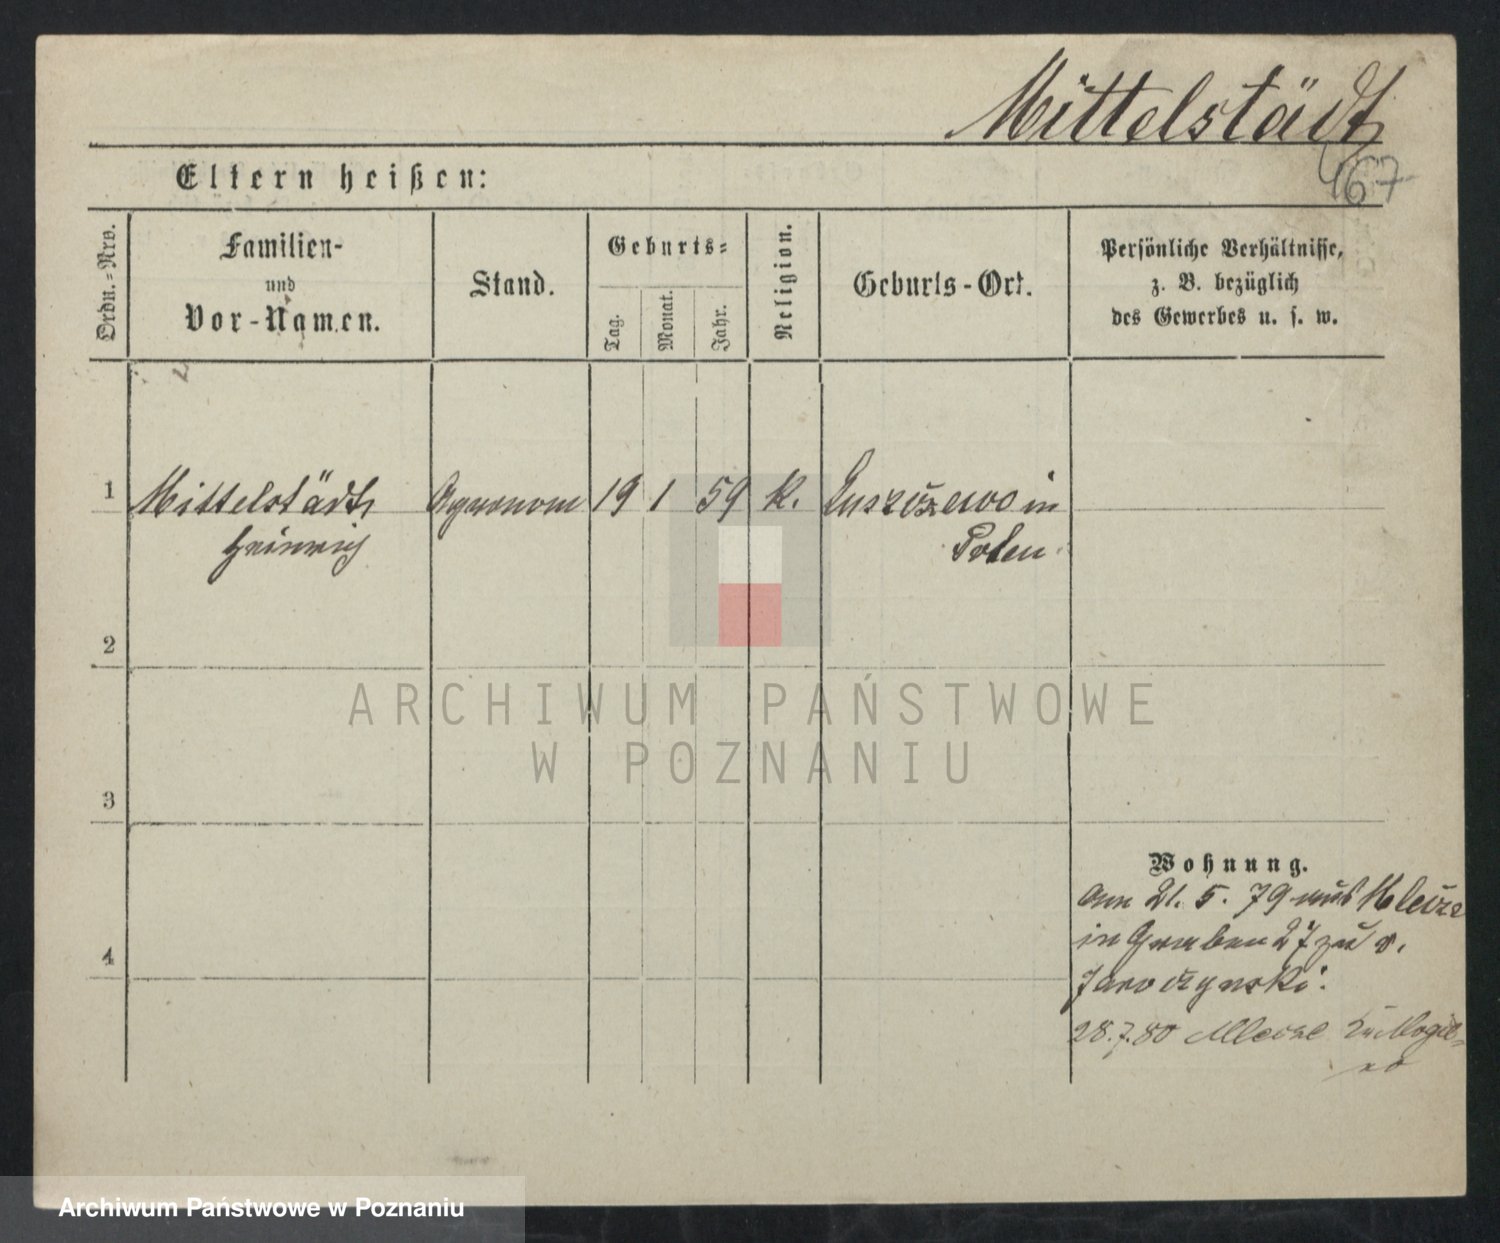 Mittelstädt
467
Eltern heißen:
Ordn.=Nro.
Familien-
und
Vor-Namen.
Stand.
Geburts=
Tag.
Monat.
Jahr.
Religion.
Geburts-Ort.
Persönliche Verhältnisse,
z. B. bezüglich
des Gewerbes u. s. w.
1 Mittelstädt Agronom 19 1 59 K. in
Heinrich Polen
2
ARCHIWUM PAŃSTWOWE
W POZNANIU
3
Wohnung.
am 21. 5. 79 aus
in Graben 27 zu v.
4
Jaroczynski.
28.7.80 zu Mogil=
no
Archiwum Państwowe w Poznaniu